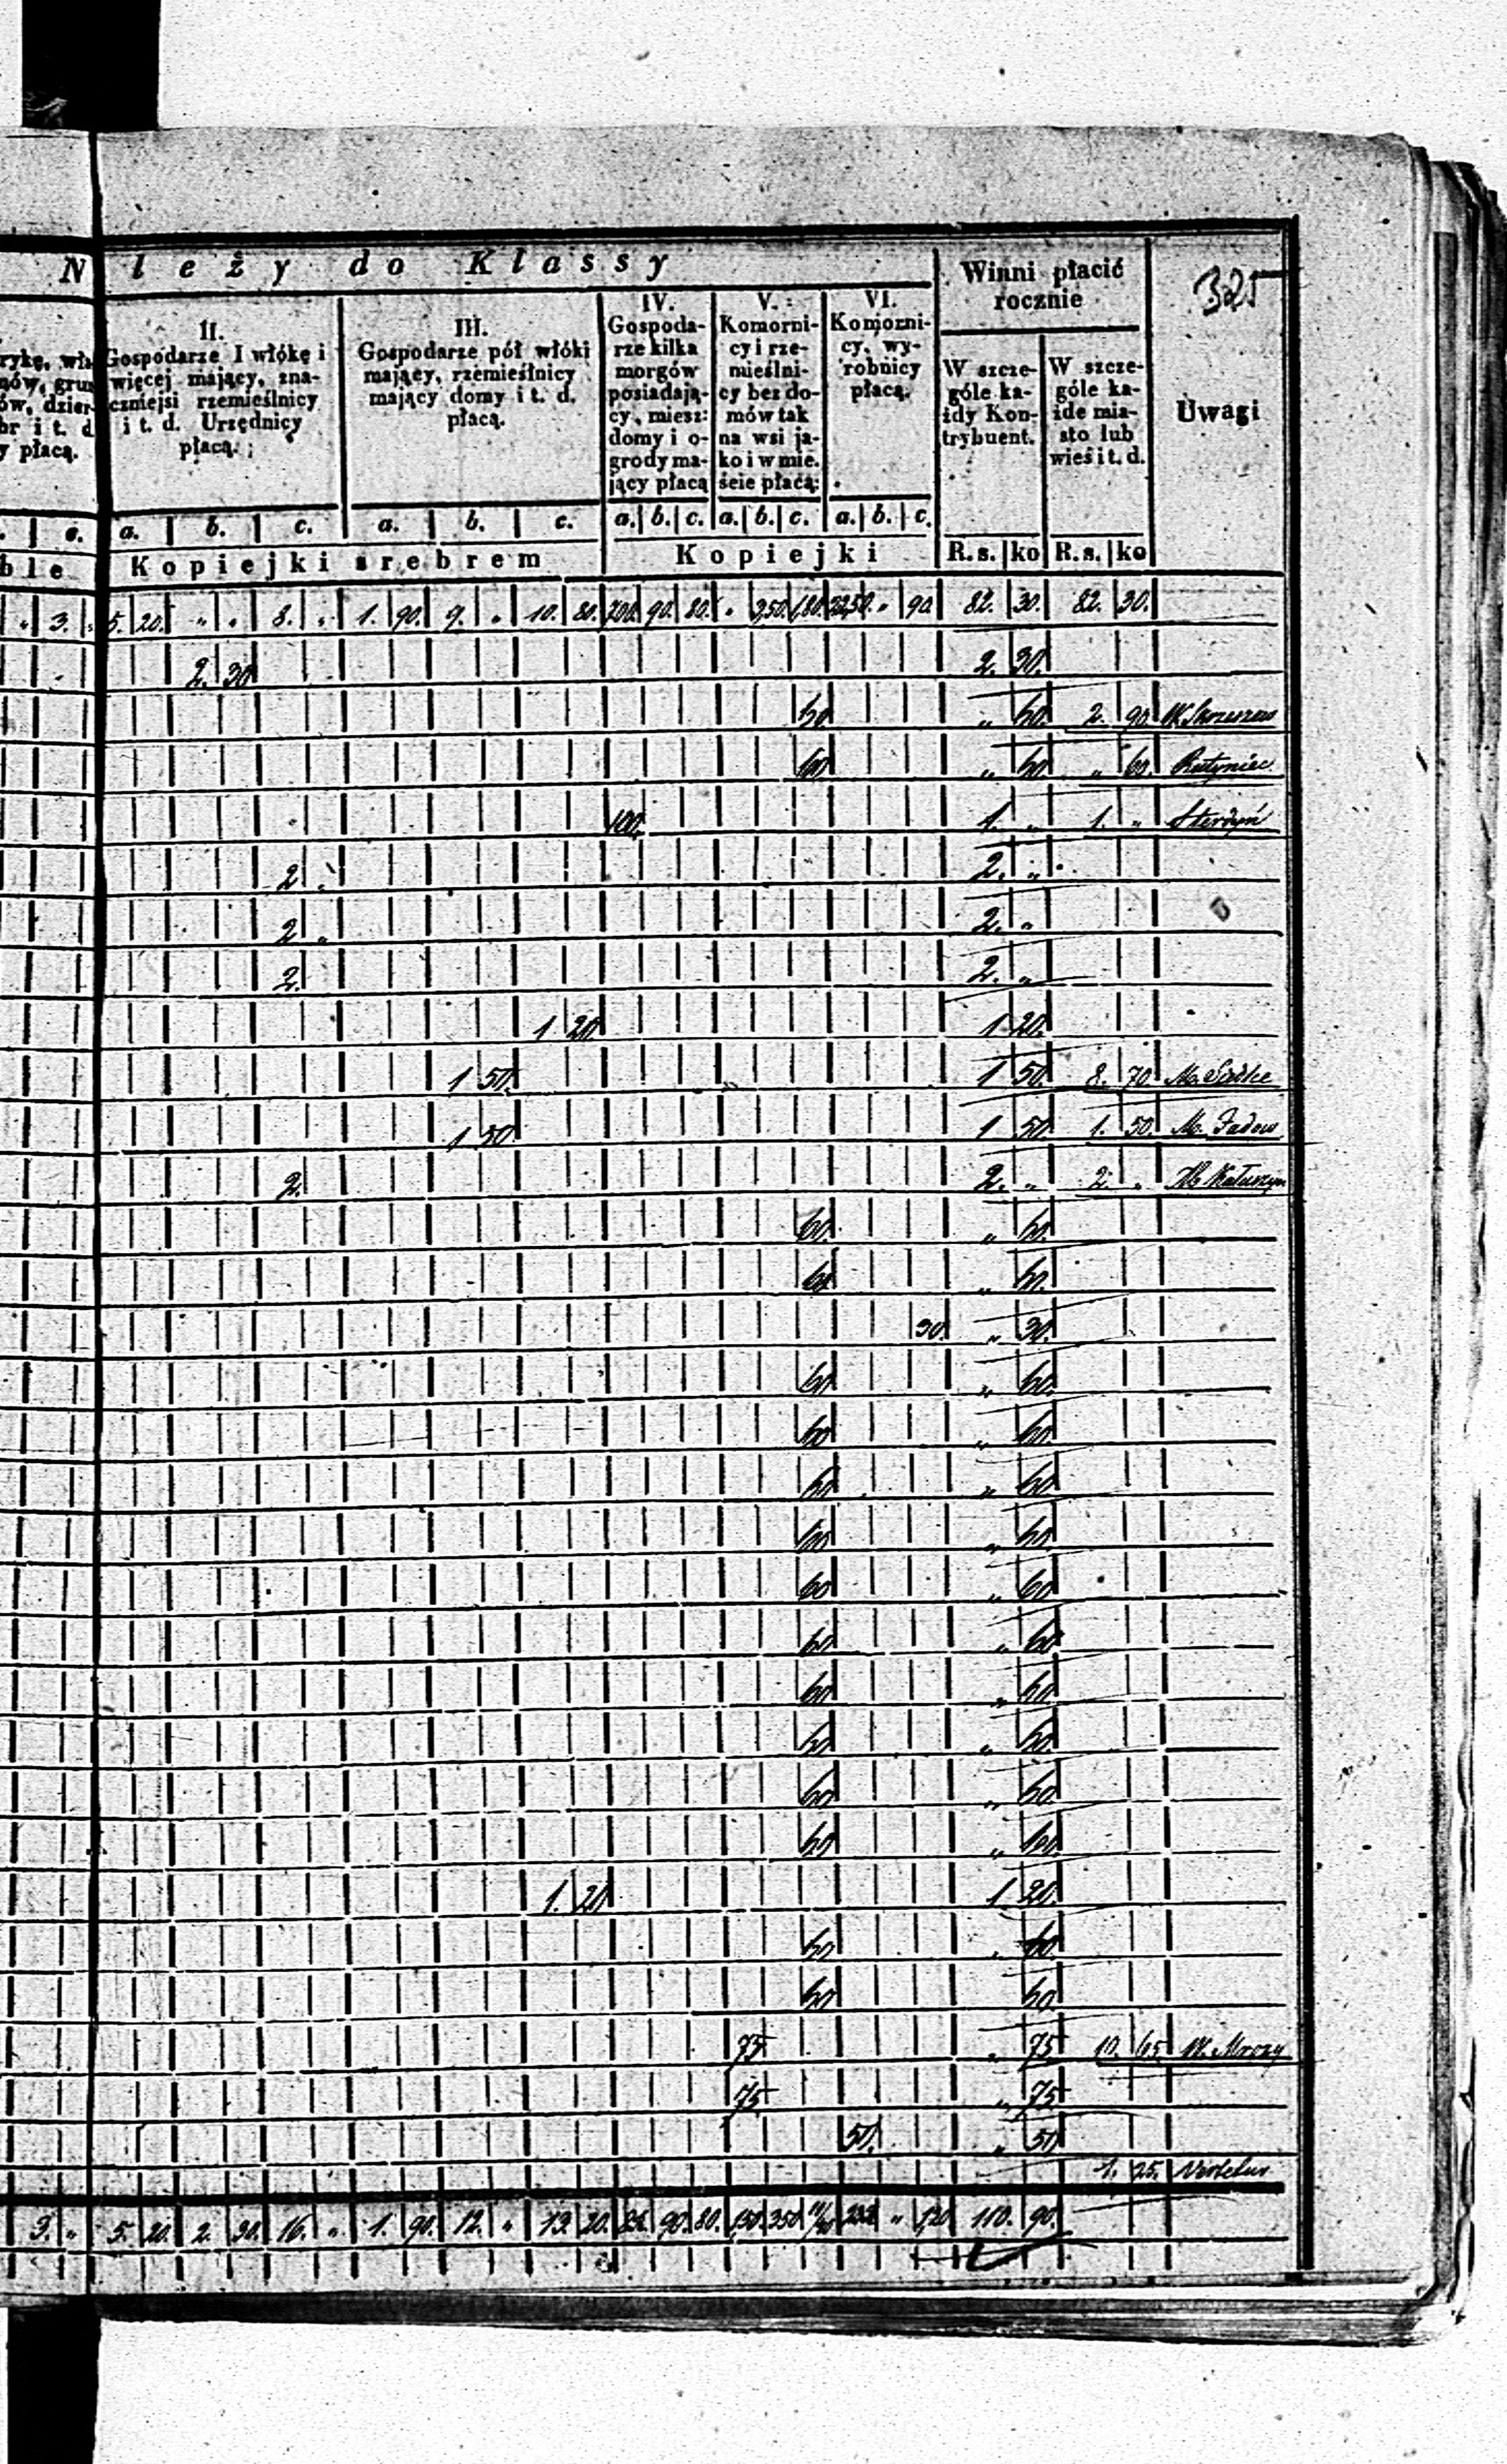 N leży do Klassy
Winni płacić rocznie
325
rykę, wła
nów, grun
ów, dzier-
br i t. d
y płacą.
II.
Gospodarze I włókę i
więcej mający, zna-
czniejsi rzemieślnicy
i t. d. Urzędnicy
płacą.
III.
Gospodarze pół włóki
mający, rzemieślnicy
mający domy i t. d.
płacą.
IV.
Gospoda-
rze kilka
morgów
posiadają-
cy, miesz:
domy i o-
grody ma-
jący płacą
V.
Komorni-
cy i rze-
mieślni-
cy bez do-
mów tak
na wsi ja-
ko i w mie.
ście płacą:
VI.
Komorni-
cy, wy-
robnicy
płacą.
W szcze-
góle ka-
żdy Kon-
trybuent.
W szcze-
góle ka-
żde mia-
sto lub
wieś i t. d.
Uwagi
c. a. b. c. a. b. c. a. b. c. a. b. c. a. b. c.
ble Kopiejki srebrem Kopiejki R.s. ko R.s. ko
„ 3. 5. 20. „ „ 8. „ 1. 90. 9. „ 10. 80. 200. 90. 80. „ 250. 180. 2250. „ 90. 82. 30. 82. 30.
2. 30 2. 30.
60 „ 60. 2. 90
60 „ 60 „ 60. Ratyniec
100. 1. „ 1. „ Sterdyń
2. „ 2. „
2 „ 2. „
2. 2. „
1 20. 1 20.
1 50. 1 50. 8. 70.
1 50 1 50 1. 50. M. Jadow
2. 2. „ 2. „ M. Kałuszyn
60. „ 60.
60 „ 60.
30. „ 30.
60 „ 60.
60 „ 60.
60 „ 60
60 „ 60.
60 „ 60
60 „ 60
60 „ 60.
60 „ 60
60 „ 60
60 „ 60
1. 20 1 20.
60 „ 60
60 60
75 „ 75 10. 65 W. Mrozy
75 „ 75
50. „ 50
1. 25.
3. „ 5. 20. 2. 30. 16. „ 1. 90. 12. „ 13. 20. 90. 80. 150. 250 „ 120 110. 90.